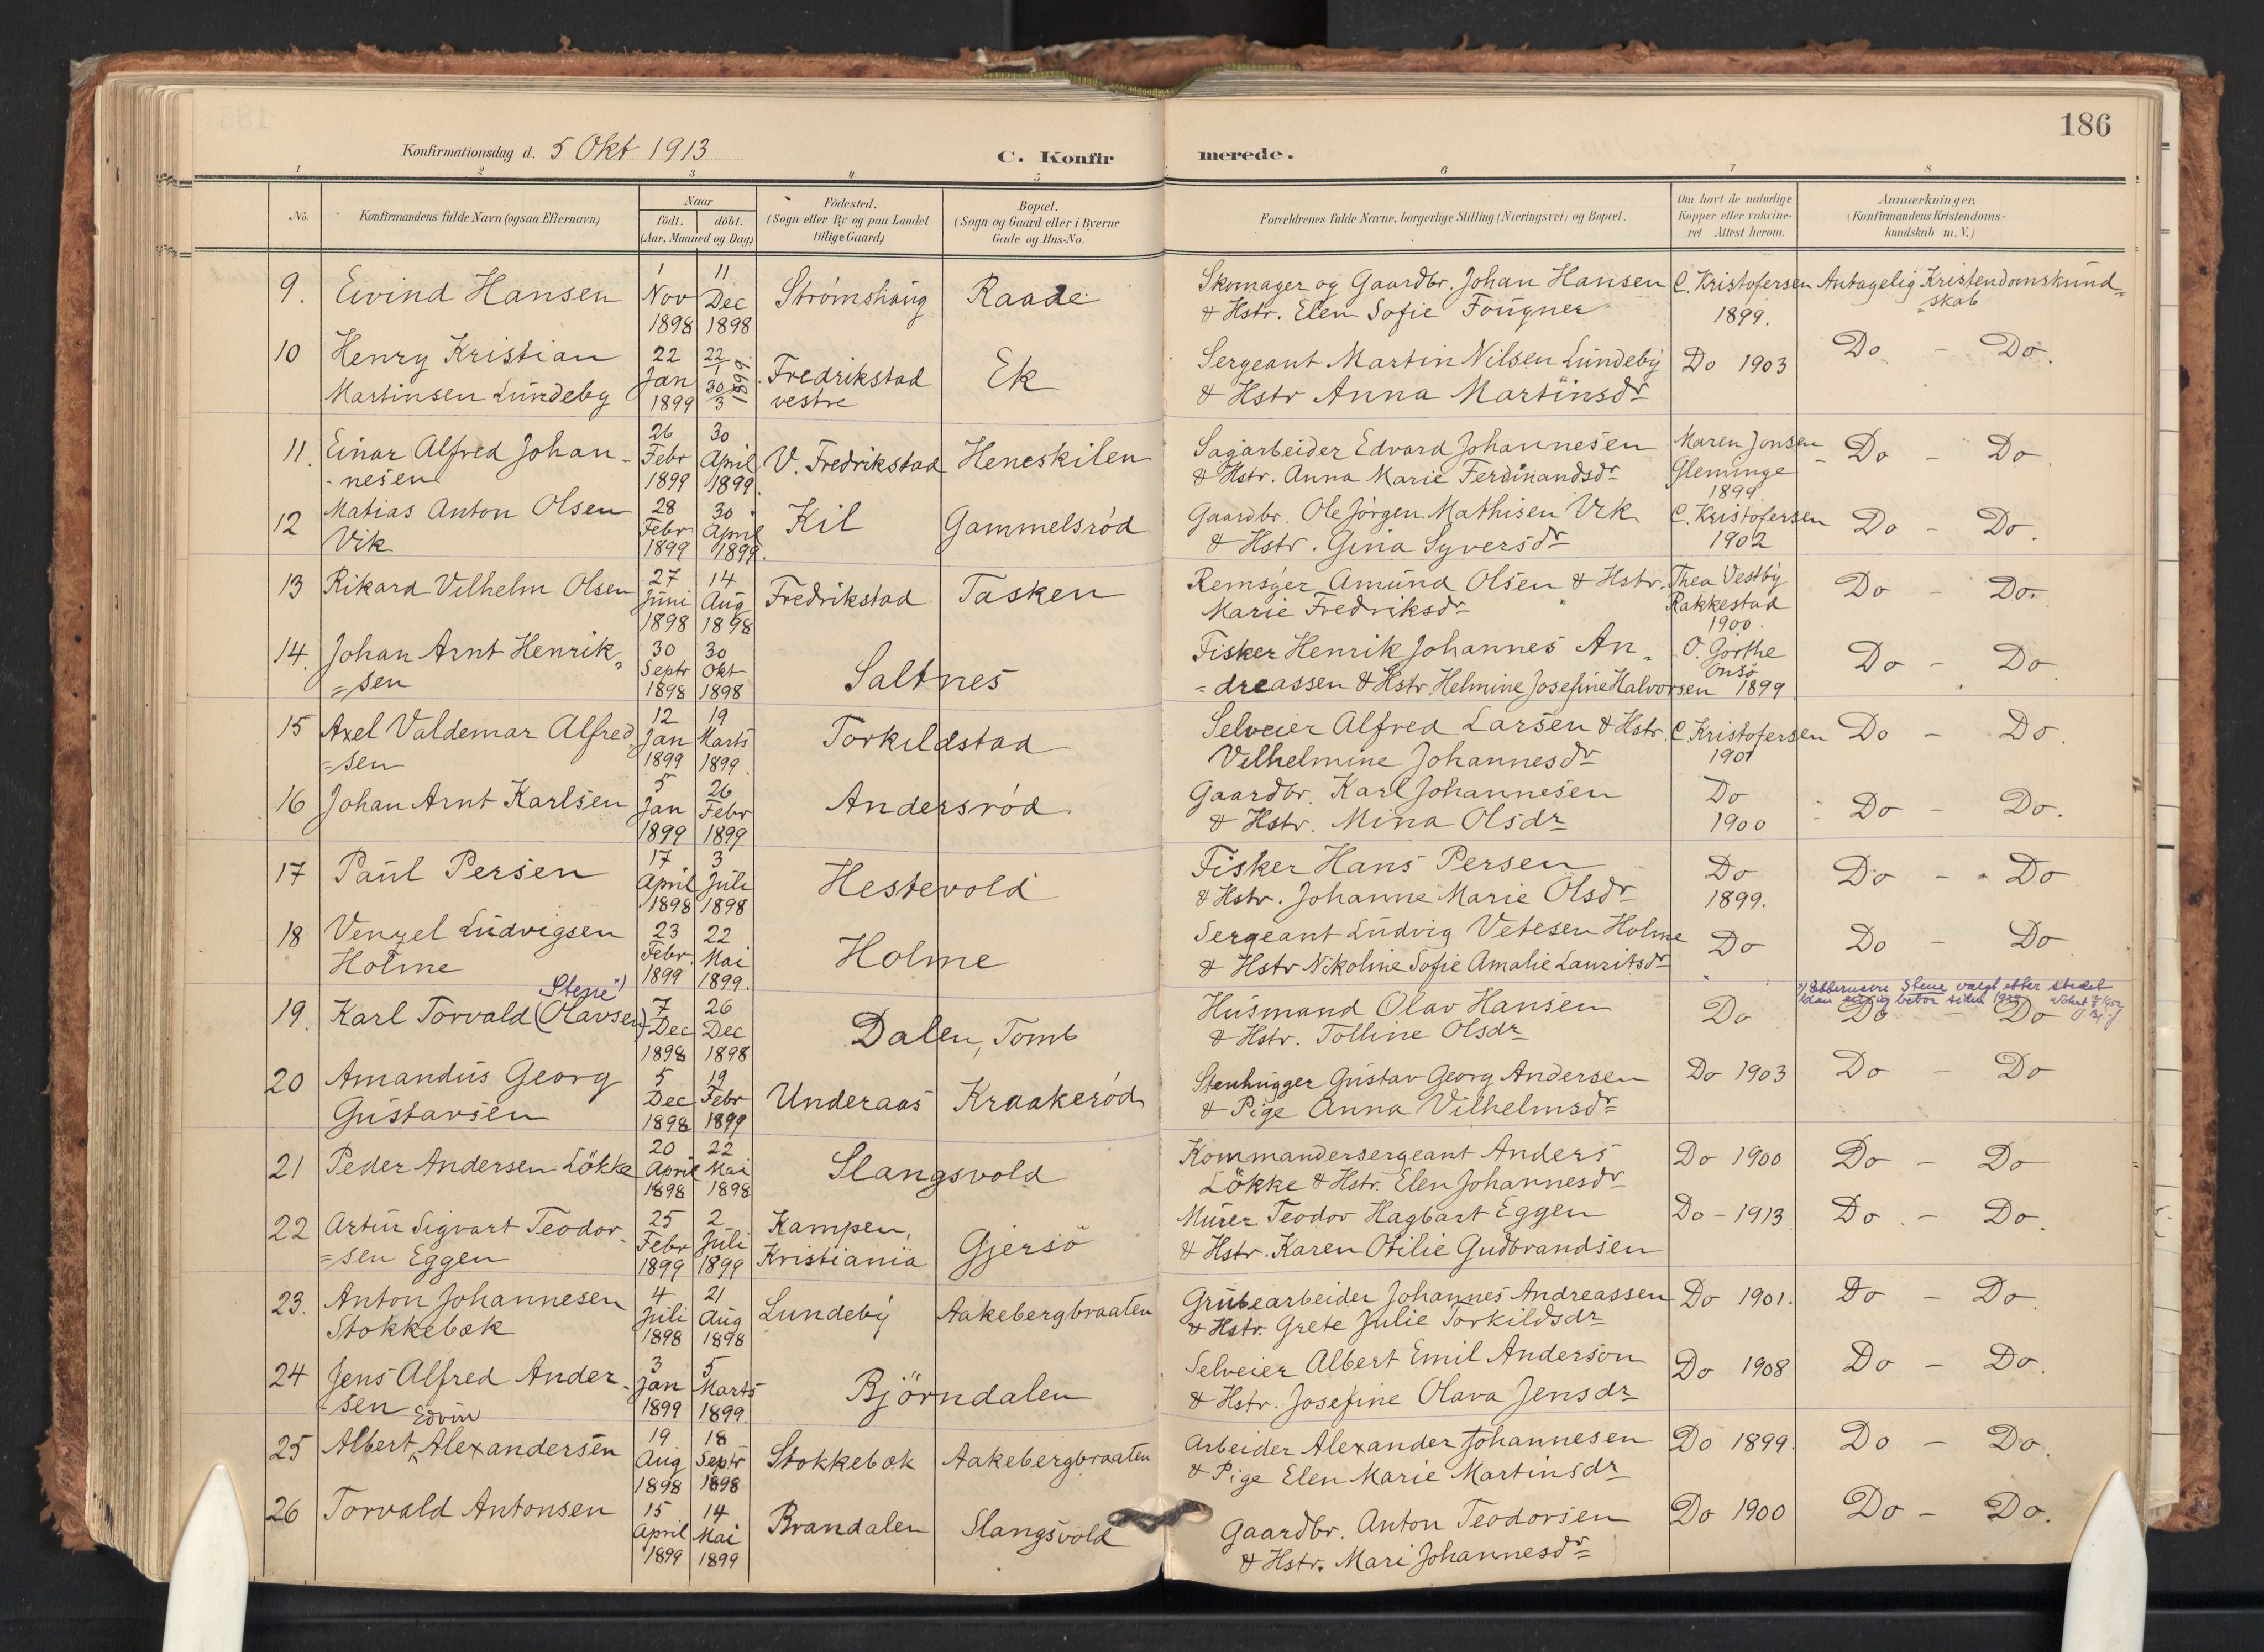 186
Konfirmationsdag d. 5 Okt 1913
C. Konfirmerede.
1 2 3 4 5 6 7 8
No.
Konfirmandens fulde Navn (ogsaa Efternavn)
Naar
födt. döbt.
(Aar, Maaned og Dag)
Födested.
(Sogn eller By og paa Landet
tillige Gaard)
Bopæl.
(Sogn og Gaard eller i Byerne
Gade og Hus-No.
Forældrenes fulde Navne, borgerlige Stilling (Næringsvei) og Bopæl.
Om havt de naturlige
Kopper eller vaksine-
ret Attest herom.
Anmærkninger.
(Konfirmandens Kristendoms-
kundskab m. V.)
9. Eivind Hansen
1 Nov 1898
11 Dec 1898
Strömshaug
Raade
Skomager og Gaardbr. Johan Hansen
& Hstr. Elen Sofie Fougner
C. Kristofersen
1899.
Antagelig Kristendomskund-
skab
10 Henry Kristian
Martinsen Lundeby
22 Jan 1899
22/1 30/3 1899
Fredrikstad
vestre
Ek
Sergeant Martin Nilsen Lundeby
& Hstr Anna Martinsdr
Do 1903
Do - Do.
11. Einar Alfred Johan-
nesen
26 Febr 1899
30 April 1899.
V. Fredrikstad
Heneskilen
Sagarbeider Edvard Johannesen
& Hstr. Anna Marie Ferdinandsdr
Maren Jonsen
Gleminge
1899
Do - Do
12 Matias Anton Olsen
Vik
28 Febr 1899
30 April 1899.
Kil
Gammelsröd
Gaardbr. Ole Jörgen Mathisen Vik
& Hstr. Gina Syversdr
C. Kristofersen
1902
Do - Do.
13 Rikard Vilhelm Olsen
27 Juni 1898
14 Aug 1898
Fredrikstad
Tasken
Remsyer Amund Olsen & Hstr.
Marie Fredriksdr
Thea Vestby
Rakkestad
1900.
Do - Do.
14. Johan Arnt Henrik-
sen
30 Septr 1898
30 Okt 1898
Saltnes
Fisker Henrik Johannes An-
dreassen & Hstr Helmine Josefine Halvorsen
O. Görthe
Onsö
1899.
Do - Do
15 Axel Valdemar Alfred-
sen
12 Jan 1899
19 Marts 1899.
Torkildstad
Selveier Alfred Larsen & Hstr.
Vilhelmine Johannesdr
C Kristofersen
1901
Do - Do.
16 Johan Arnt Karlsen
5 Jan 1899
26 Febr 1899
Andersröd
Gaardbr. Karl Johannesen
& Hstr. Mina Olsdr
Do
1900
Do - Do.
17 Paul Persen
17 April 1898
3 Juli 1898
Hestevold
Fisker Hans Persen
& Hstr. Johanne Marie Olsdr
Do
1899.
Do - Do
18 Venzel Ludvigsen
Holme
23 Febr. 1899
22 Mai 1899.
Holme
Sergeant Ludvig Vetesen Holme
& Hstr Nikoline Sofie Amalie Lauritsdr
Do
Do - Do
19. Karl Torvald (Olavsen)
Stene
7 Dec 1898
26 Dec 1898
Dalen, Tomb
Husmand Olav Hansen
& Hstr. Tolline Olsdr
Do
Efternavn Stene valgt efter stedet
Do - Do
20 Amandus Georg
Gustavsen
5 Dec 1898
19 Febr 1899
Underaas
Kraakeröd
Stenhugger Gustav Georg Andersen
& Pige Anna Vilhelmsdr
Do 1903
Do - Do
21 Peder Andersen Lökke
20 April 1898
22 Mai 1898
Slangsvold
Kommandersergeant Anders
Lökke & Hstr. Elen Johannesdr
Do 1900
Do - Do
22 Artur Sigvart Teodor-
sen Eggen
25 Febr 1899
2 Juli 1899
Kampen,
Kristiania
Gjersö
Murer Teodor Hagbart Eggen
& Hstr. Karen Otilie Gudbrandsen
Do - 1913.
Do - Do.
23. Anton Johannesen
Stokkebæk
4 Juli 1898
21 Aug 1898
Lundeby
Aakebergbraaten
Grubearbeider Johannes Andreassen
& Hstr. Grete Julie Torkildsdr
Do 1901.
Do - Do.
24 Jens Alfred Ander-
sen
3 Jan 1899
5 Marts 1899.
Björndalen
Selveier Albert Emil Anderson
& Hstr. Josefine Olava Jensdr
Do 1908
Do - Do.
25 Albert Edvin Alexandersen
19 Aug 1898
18 Septr 1898
Stokkebæk
Aakebergbraaten
Arbeider Alexander Johannesen
& Pige Elen Marie Martinsdr
Do 1899.
Do - Do.
26 Torvald Antonsen
15 April 1899
14 Mai 1899
Brandalen
Slangsvold
Gaardbr. Anton Teodorsen
& Hstr. Mari Johannesdr
Do 1900
Do - Do.